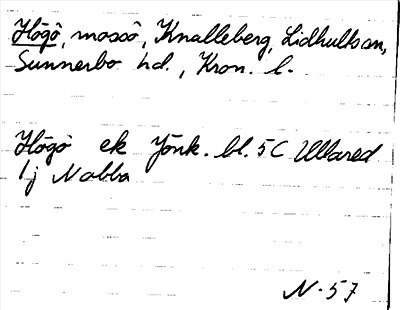 Högö, mossö, Knalleberg, Lidhults sn,
Sunnerbo hd., Kron. l.
Högö ek Jönk. bl. 5C Ullared
1j Nabba
N. 57